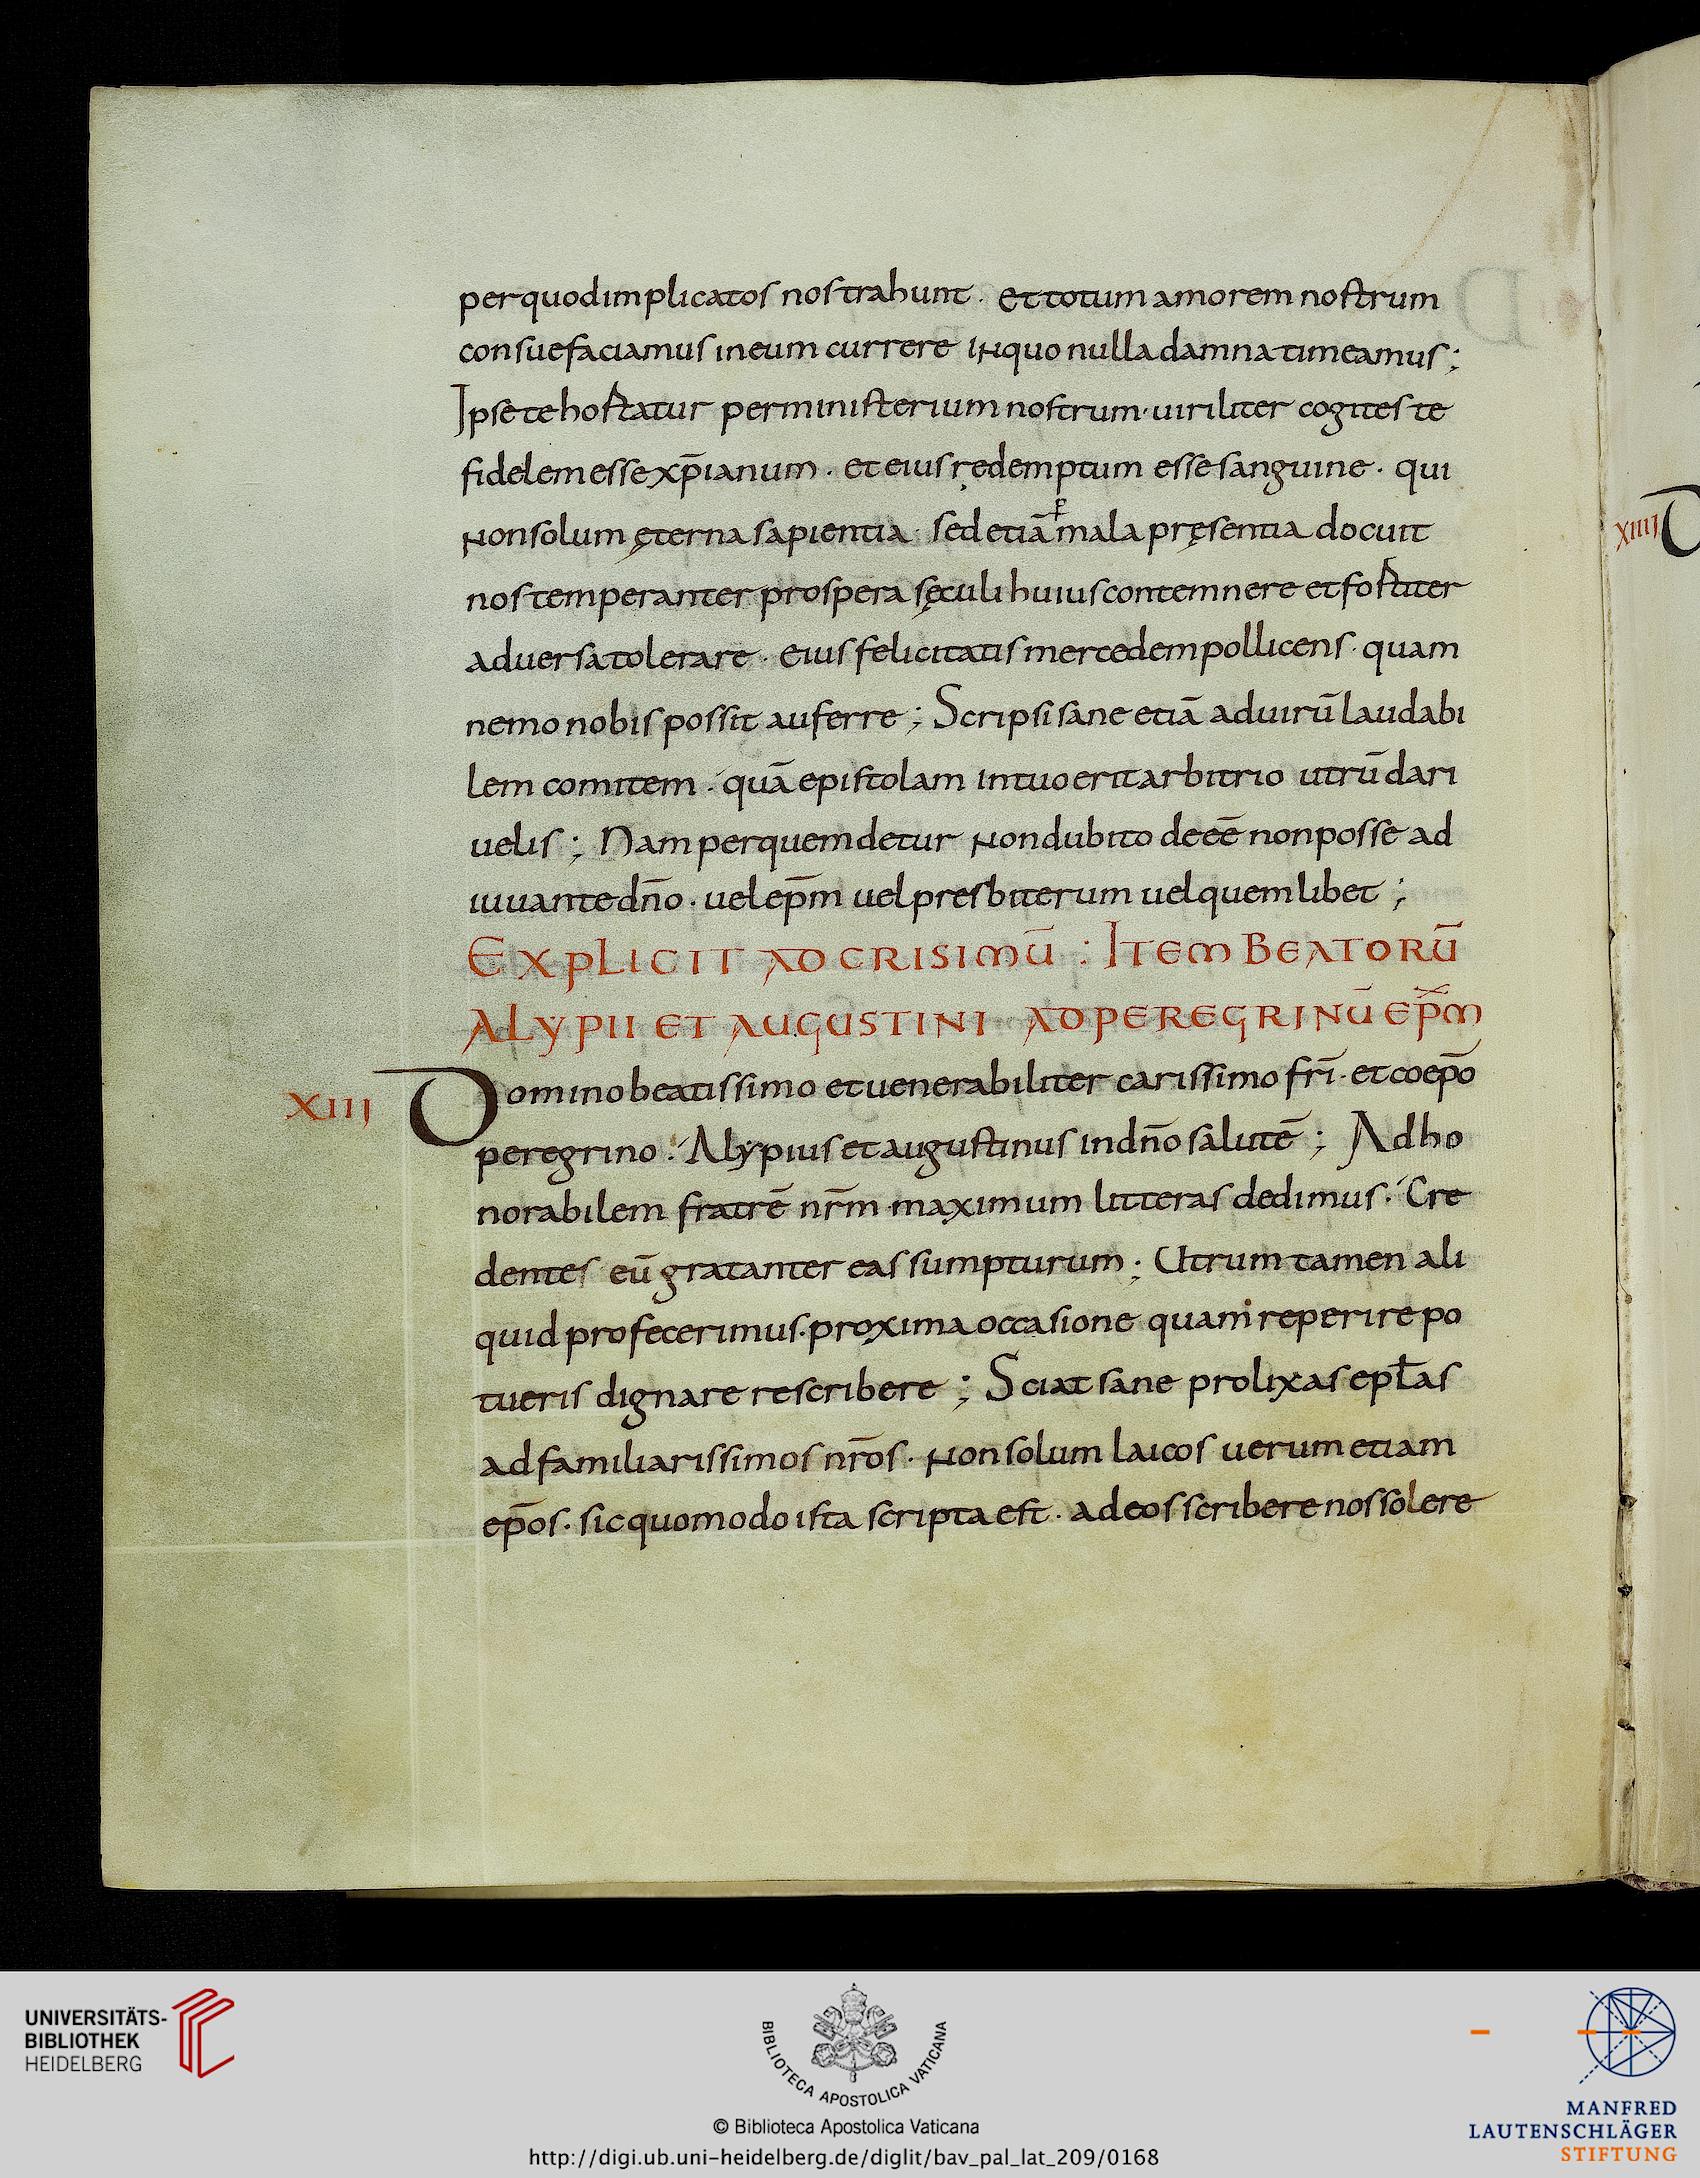 per quod implicatos nos trahunt · et totum amorem nostrum
consuefaciamus in eum currere in quo nulla damna timeamus ;
Ipse te hortatur per ministerium nostrum · uiriliter cogites te
fidelem esse xp̄ianum · et eius redemptum esse sanguine · qui
non solum ęterna sapientia · sed etiā mala pręsentia docuit
nos temperanter prospera sęculi huius contemnere et fortiter
aduersa tolerare · eius felicitatis mercedem pollicens · quam
nemo nobis possit auferre ; Scripsi sane etiā ad uirū laudabi
lem comitem · quā epistolam in tuo erit arbitrio utrū dari
uelis ; Nam per quem detur non dubito deeē non posse ad
iuuante dn̄o · uel ep̄m uel presbiterum uel quemlibet ;
EXPLICIT AD CRISIMŪ : ITEM BEATORŪ
ALYPII ET AUGUSTINI AD PEREGRINŪ EP̄M
XIII Domino beatissimo et uenerabiliter carissimo frī · et coep̄o
peregrino · Alypius et augustinus in dn̄o salutē ; Ad ho
norabilem fratrē nr̄m maximum litteras dedimus · Cre
dentes eū gratanter eas sumpturum ; Utrum tamen ali
quid profecerimus · proxima occasione quam reperire po
tueris dignare rescribere ; Sciat sane prolixas epƚas
ad familiarissimos nr̄os · non solum laicos uerum etiam
ep̄os · sic quomodo ista scripta est · ad eos scribere nos solere
XIIII
UNIVERSITÄTS-
BIBLIOTHEK
HEIDELBERG
BIBLIOTECA APOSTOLICA VATICANA
© Biblioteca Apostolica Vaticana
http://digi.ub.uni-heidelberg.de/diglit/bav_pal_lat_209/0168
MANFRED
LAUTENSCHLÄGER
STIFTUNG